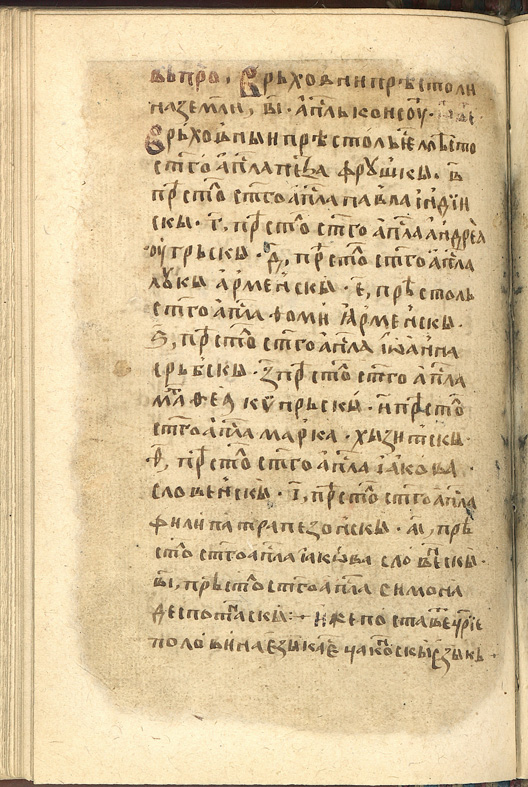 въпро. Врьховнипрѣстоли
наземли, в҃і. апⷭ҇льконеоу·
Врьховныипрѣстольіелѣвѣсто
ст҃гоап҃лапе҃ва фрꙋшкы. в҃
прⷭ҇ето ст҃гоап҃лапавла інꙣїи
скы. г҃, прⷭ҇ето ст҃го ап҃лаанꙣреа
оугрьскы. д҃, прⷭ҇ето ст҃гоап҃ла
лꙋкы арменскы. е҃, прѣстоль
ст҃гоап҃ла фоми ꙗрменскы.
ѕ҃, прⷭ҇ето ст҃гоап҃ла іѡанна
срьбскы. з҃прⷭ҇ето ст҃го ап҃ла
маⷴ҇феа кѵпрьскы. и҃прⷭ҇ето
ст҃гоап҃ла марка.
ѳ҃, прⷭ҇ето ст҃го ап҃ла іакова.
словенскы. і҃, прⷭ҇ето ст҃гоап҃ла
филипа трапезонскы. а҃і, прѣ
сто ст҃гоап҃лаіакѡва словⷩ҇ескы.
в҃і, прѣсто ст҃гоап҃ла симона
деспотⷭ҇аскы: иже по
половинаезыкаѥ езыкь